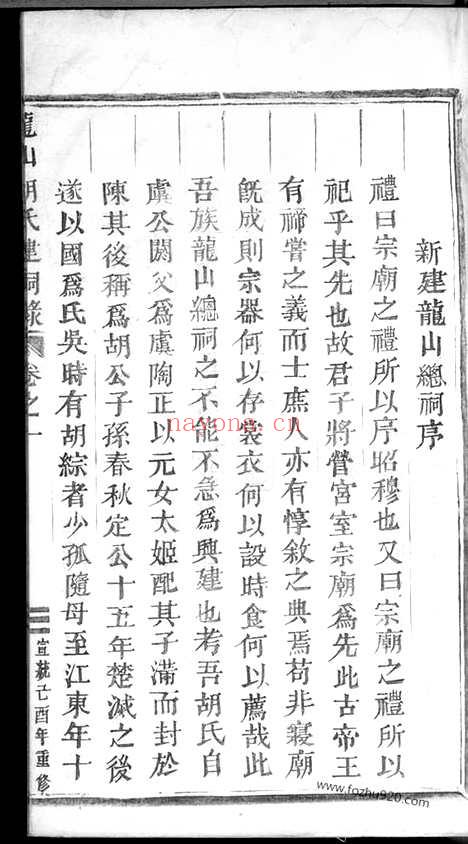 新建龍山總祠序
禮曰宗廟之禮所以序昭穆也又曰宗廟之禮所以
祀乎其先也故君子將營宮室宗廟爲先此古帝王
有禘嘗之義而士庶人亦有惇敘之典焉苟非寢廟
旣成則宗器何以存裳衣何以設時食何以薦哉此
吾族龍山總祠之不能不急爲興建也考吾胡氏自
虞公閼父爲虞陶正以元女太姬配其子滿而封於
陳其後稱爲胡公子孫春秋定公十五年楚滅之後
遂以國爲氏吳時有胡綜者少孤隨母至江東年十
龍山胡氏建祠錄 卷之一
三 宣統己酉年重修
nayong.cn
www.fozhu920.com